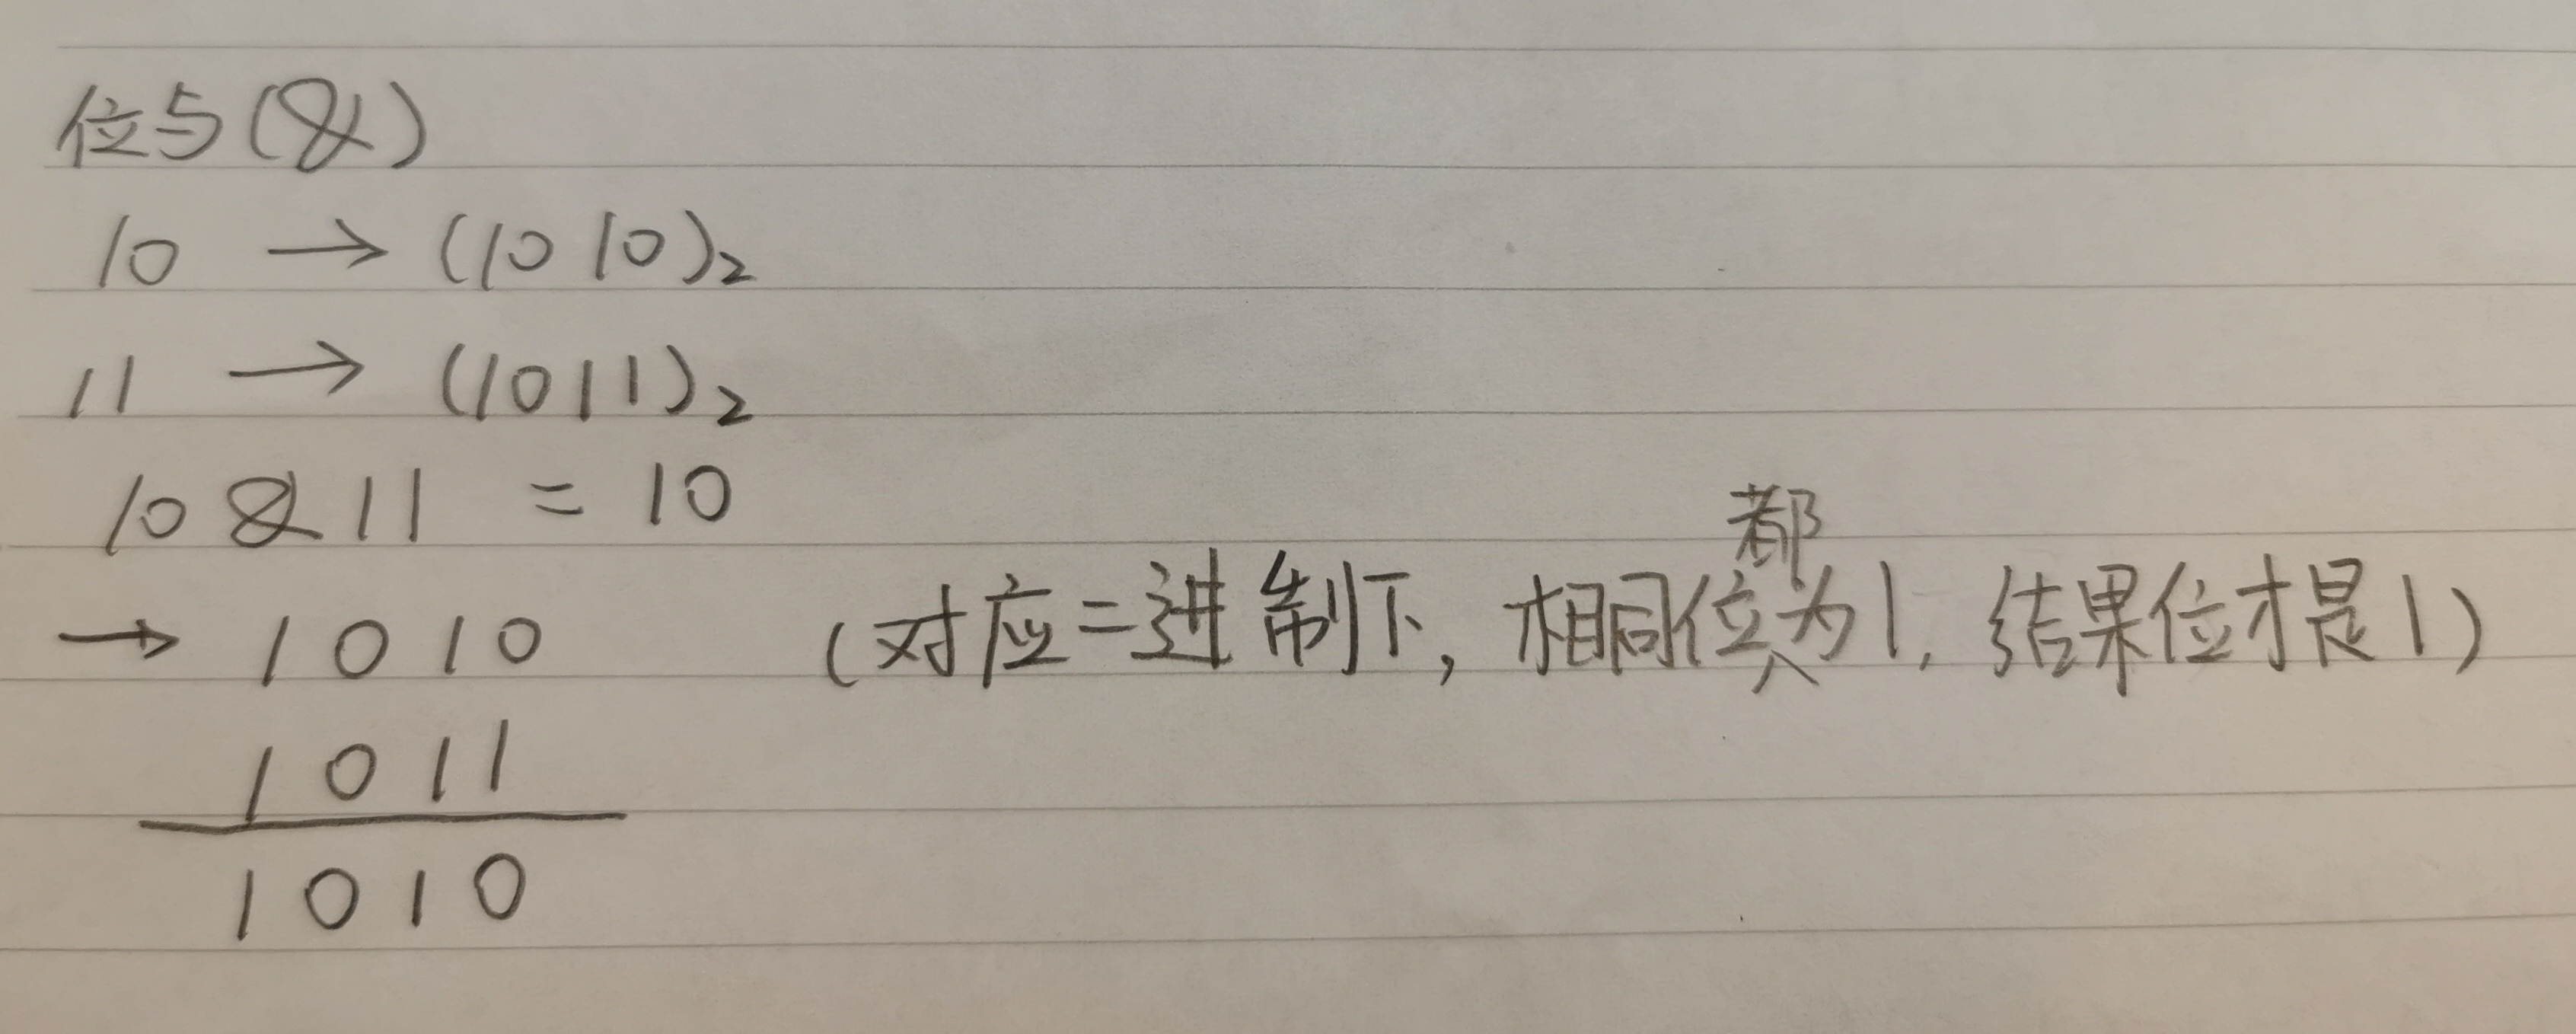 位与(&)
10 → (1010)₂
11 → (1011)₂
10 & 11 = 10
→ 1010 (对应二进制下, 相同位都为1, 结果位才是1)
1011
1010